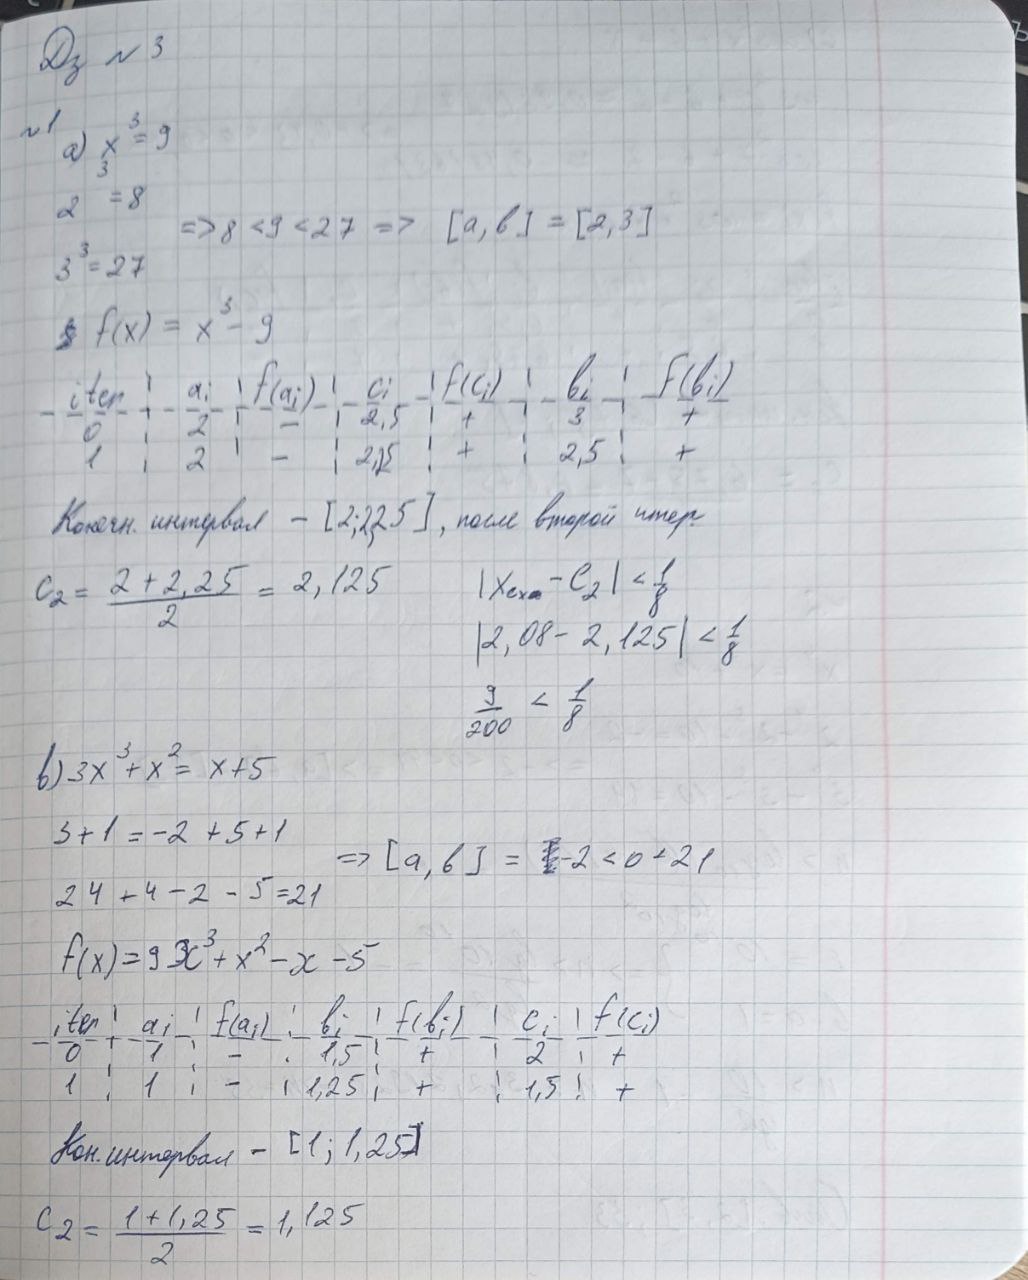 Дз №3
№1
а) x³ = 9
2³ = 8
=> 8 < 9 < 27 => [a, b] = [2, 3]
3³ = 27
f(x) = x³ - 9
iter | ai | f(ai) | ci | f(ci) | bi | f(bi)
0 | 2 | - | 2,5 | + | 3 | +
1 | 2 | - | 2,25 | + | 2,5 | +
Конечн. интервал - [2; 2,25], после второй итер.
C₂ = (2 + 2,25)/2 = 2,125
| - C₂| < 1/8
|2,08 - 2,125| < 1/8
9/200 < 1/8
b) 3x³ + x² = x + 5
3 + 1 = -2 + 5 + 1
=> [a, b] = -2 < 0 < 21
24 + 4 - 2 - 5 = 21
f(x) = 3x³ + x² - x - 5
iter | ai | f(ai) | bi | f(bi) | ci | f(ci)
0 | 1 | - | 1,5 | + | 2 | +
1 | 1 | - | 1,25 | + | 1,5 | +
Кон. интервал - [1; 1,25]
C₂ = (1 + 1,25)/2 = 1,125